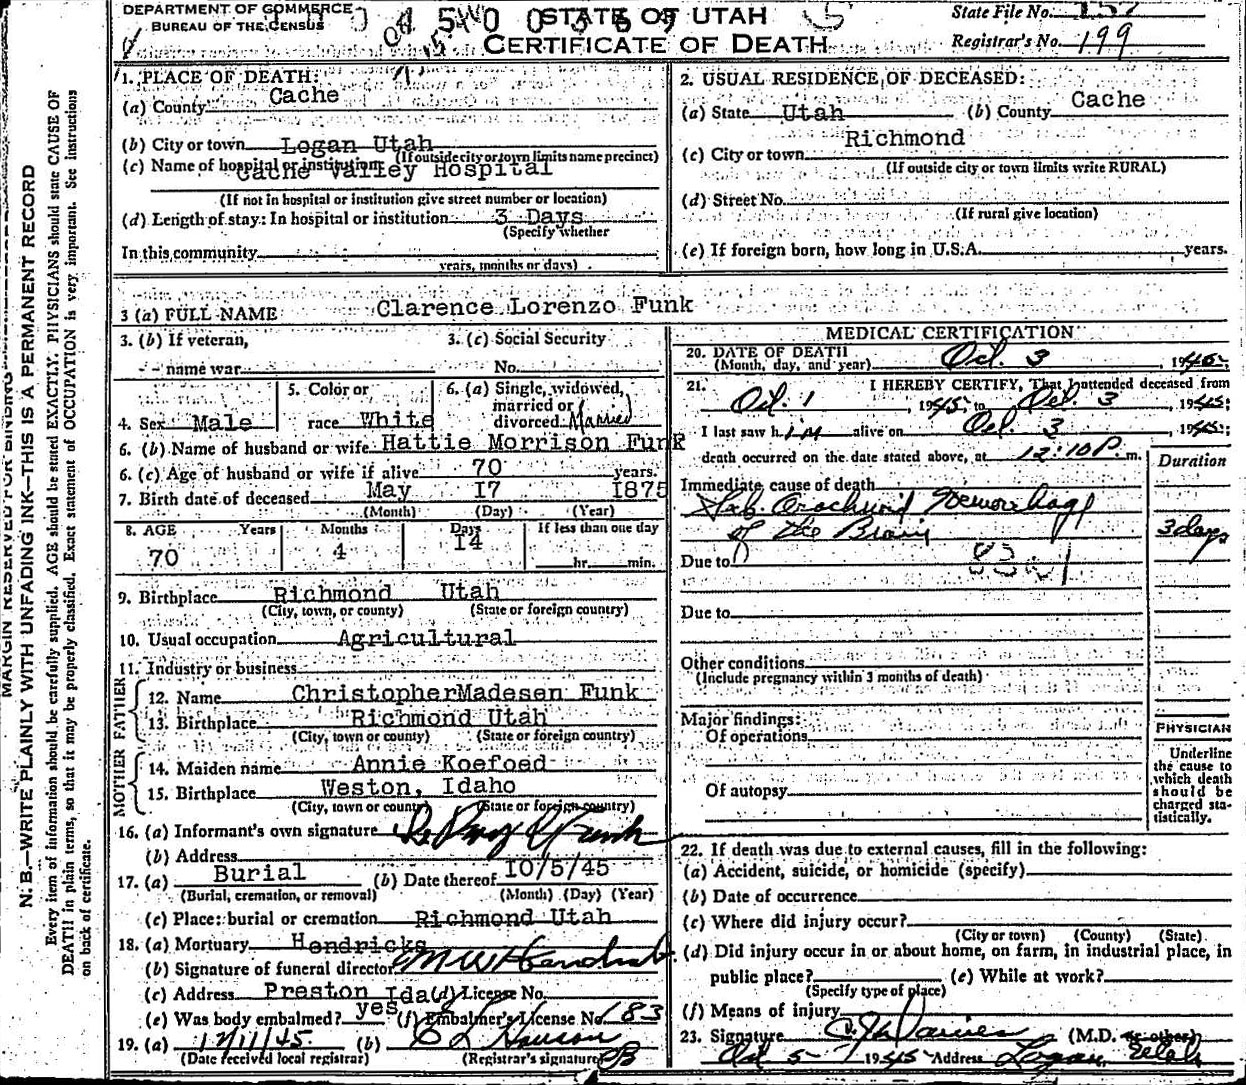 DEPARTMENT OF COMMERCE
BUREAU OF THE CENSUS
STATE OF UTAH
CERTIFICATE OF DEATH
State File No.
Registrar's No. 199
MARGIN RESERVED FOR BINDING
N. B.—WRITE PLAINLY WITH UNFADING INK—THIS IS A PERMANENT RECORD
Every item of information should be carefully supplied. AGE should be stated EXACTLY. PHYSICIANS should state CAUSE OF
DEATH in plain terms, so that it may be properly classified. Exact statement of OCCUPATION is very important. See instructions
on back of certificate.
1. PLACE OF DEATH:
(a) County Cache
(b) City or town Logan Utah
(If outside city or town limits name precinct)
(c) Name of hospital or institution: Cache Valley Hospital
(If not in hospital or institution give street number or location)
(d) Length of stay: In hospital or institution 3 Days
(Specify whether
In this community
years, months or days)
2. USUAL RESIDENCE OF DECEASED:
(a) State Utah (b) County Cache
(c) City or town Richmond
(If outside city or town limits write RURAL)
(d) Street No.
(If rural give location)
(e) If foreign born, how long in U.S.A. years.
3 (a) FULL NAME Clarence Lorenzo Funk
3. (b) If veteran,
name war
3. (c) Social Security
No.
4. Sex Male
5. Color or
race White
6. (a) Single, widowed,
married or
divorced Married
6. (b) Name of husband or wife Hattie Morrison Funk
6. (c) Age of husband or wife if alive 70 years.
7. Birth date of deceased May 17 1875
(Month) (Day) (Year)
8. AGE Years Months Days If less than one day
70 4 14 hr. min.
9. Birthplace Richmond Utah
(City, town, or county) (State or foreign country)
10. Usual occupation Agricultural
11. Industry or business
FATHER
12. Name ChristopherMadesen Funk
13. Birthplace Richmond Utah
(City, town or county) (State or foreign country)
MOTHER
14. Maiden name Annie Koefoed
15. Birthplace Weston, Idaho
(City, town or county) (State or foreign country)
16. (a) Informant's own signature Funk
(b) Address
17. (a) Burial (b) Date thereof 10/5/45
(Burial, cremation, or removal) (Month) (Day) (Year)
(c) Place: burial or cremation Richmond Utah
18. (a) Mortuary Hendricks
(b) Signature of funeral director
(c) Address Preston Ida (d) License No.
(e) Was body embalmed? yes (f) Embalmer's License No. 183
19. (a) (b)
(Date received local registrar) (Registrar's signature)
MEDICAL CERTIFICATION
20. DATE OF DEATH
(Month, day, and year) Oct. 3, 1945.
21. I HEREBY CERTIFY, That I attended deceased from
Oct. 1, 1945, to Oct. 3, 1945;
I last saw him alive on Oct. 3, 1945;
death occurred on the date stated above, at 12:10 P. m.
Immediate cause of death
Duration
Hemorrhage
of the Brain
3 days
Due to
Due to
Other conditions
(Include pregnancy within 3 months of death)
Major findings:
Of operations
Of autopsy
PHYSICIAN
Underline
the cause to
which death
should be
charged sta-
tistically.
22. If death was due to external causes, fill in the following:
(a) Accident, suicide, or homicide (specify)
(b) Date of occurrence
(c) Where did injury occur?
(City or town) (County) (State)
(d) Did injury occur in or about home, on farm, in industrial place, in
public place? (e) While at work?
(Specify type of place)
(f) Means of injury
23. Signature (M.D. or other)
Oct 5- 1945 Address Logan, Utah